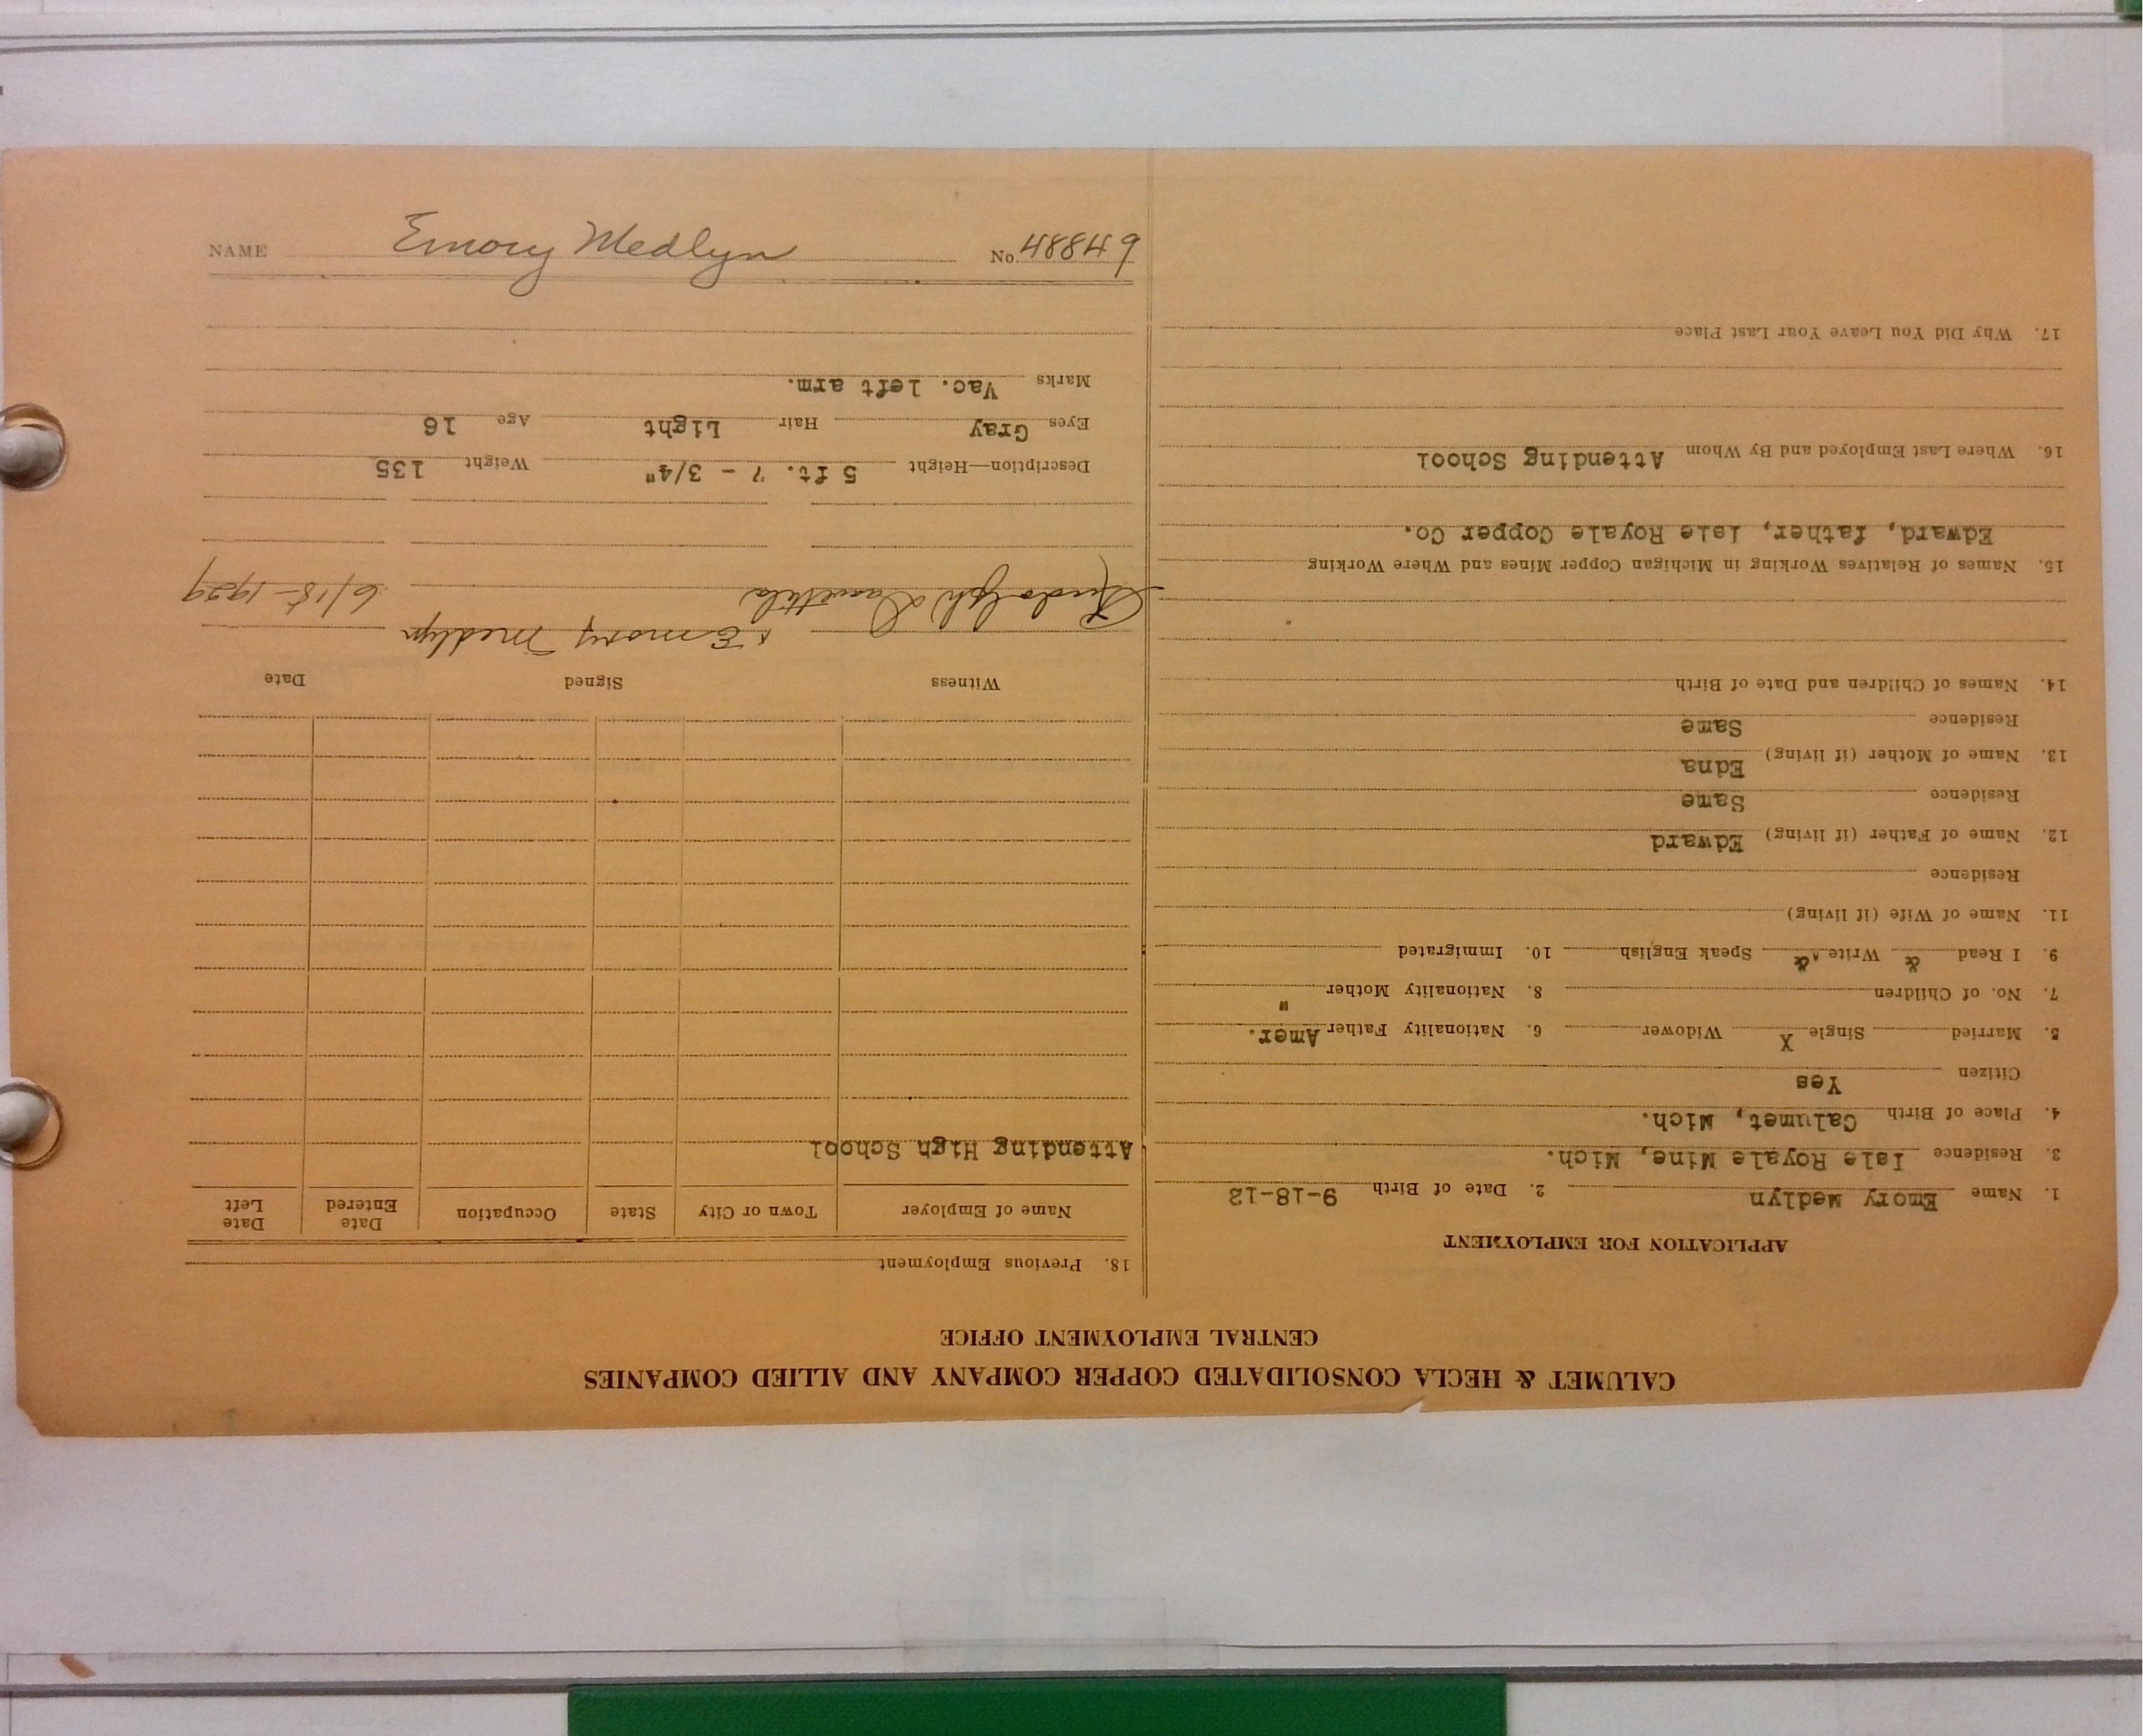 CALUMET & HECLA CONSOLIDATED COPPER COMPANY AND ALLIED COMPANIES
CENTRAL EMPLOYMENT OFFICE
APPLICATION FOR EMPLOYMENT
1. Name Emory Medlyn 2. Date of Birth 9-18-12
3. Residence Isle Royale Mine, Mich.
4. Place of Birth Calumet, Mich.
Citizen Yes
5. Married Single X Widower 6. Nationality Father Amer.
7. No. of Children 8. Nationality Mother "
9. I Read & Write & Speak English 10. Immigrated
11. Name of Wife (if living)
Residence
12. Name of Father (if living) Edward
Residence Same
13. Name of Mother (if living) Edna
Residence Same
14. Names of Children and Date of Birth
15. Names of Relatives Working in Michigan Copper Mines and Where Working
Edward, father, Isle Royale Copper Co.
16. Where Last Employed and By Whom Attending School
17. Why Did You Leave Your Last Place
18. Previous Employment
Name of Employer Town or City State Occupation Date Entered Date Left
Attending High School
Witness Signed Date
Rudolph x Emory Medlyn 6/18-1929
Description—Height 5 ft. 7 - 3/4" Weight 135
Eyes Gray Hair Light Age 16
Marks Vac. left arm.
NAME Emory Medlyn No. 48849